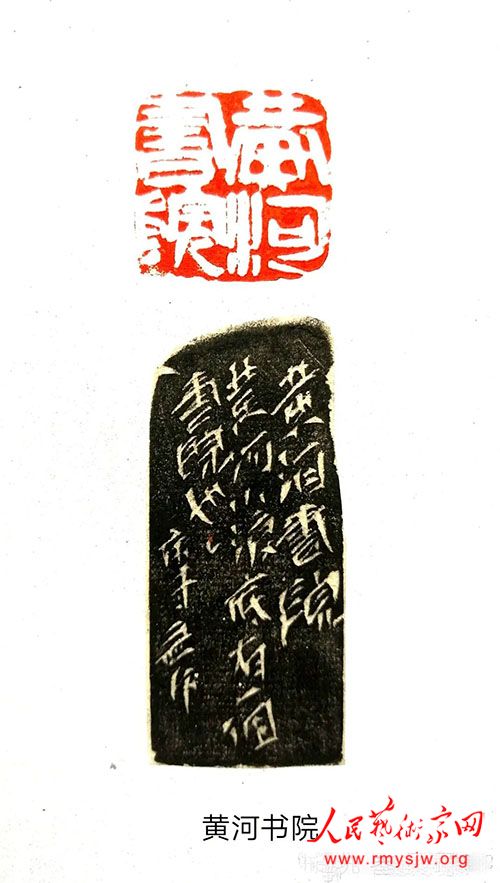 黄河
書院
黄河書院
黄河小浪底有個
書院也
庚子
黄河书院
人民藝術家网
www.rmysjw.org